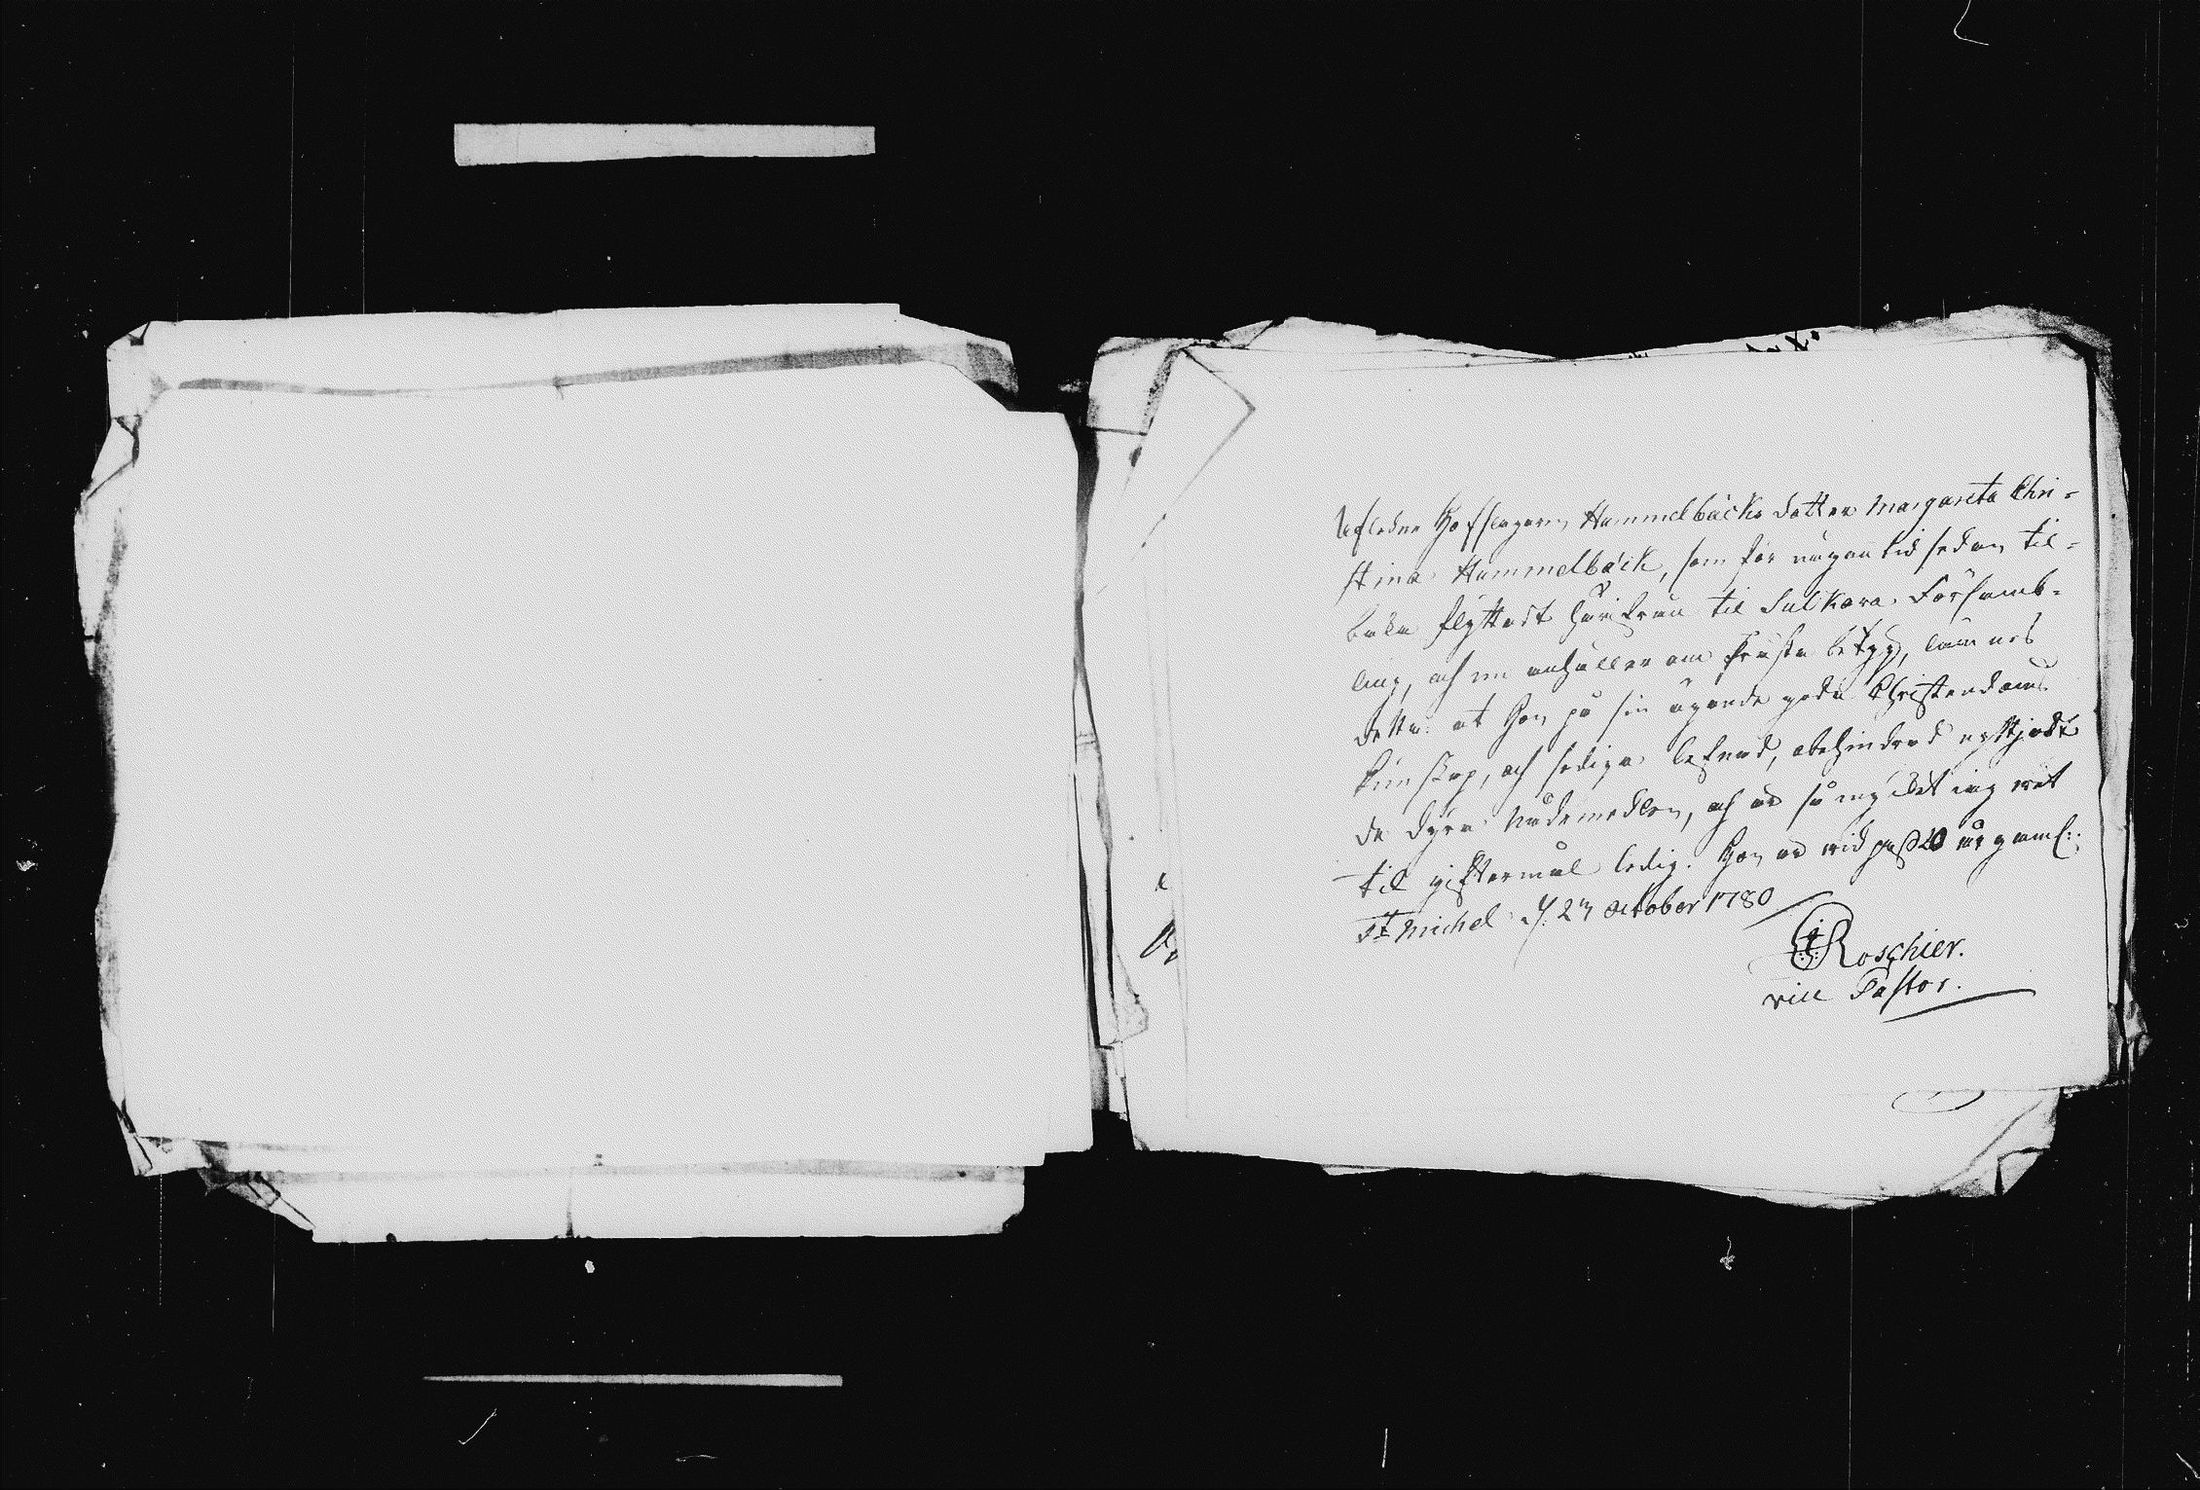 Afledne Hofslagaren Hammelbäcks dotter Margareta Chri=
stina Hammelbäck, som för någon tid sedan til=
baka flyttadt härifrån til Sulkava Församb=
ling, och nu anhåller om friska betyg, lämnas
detta: at hon på sin ägande goda Christendoms
kunskap, och sediga lefnad, obehindrad nyttjadt
de dyra nådemedlen, och är så mycket jag vet
til giftermål ledig. Hon är vid pass 20 år gamal:
St Michel d: 27 October 1780
Roschier.
vice Pastor.